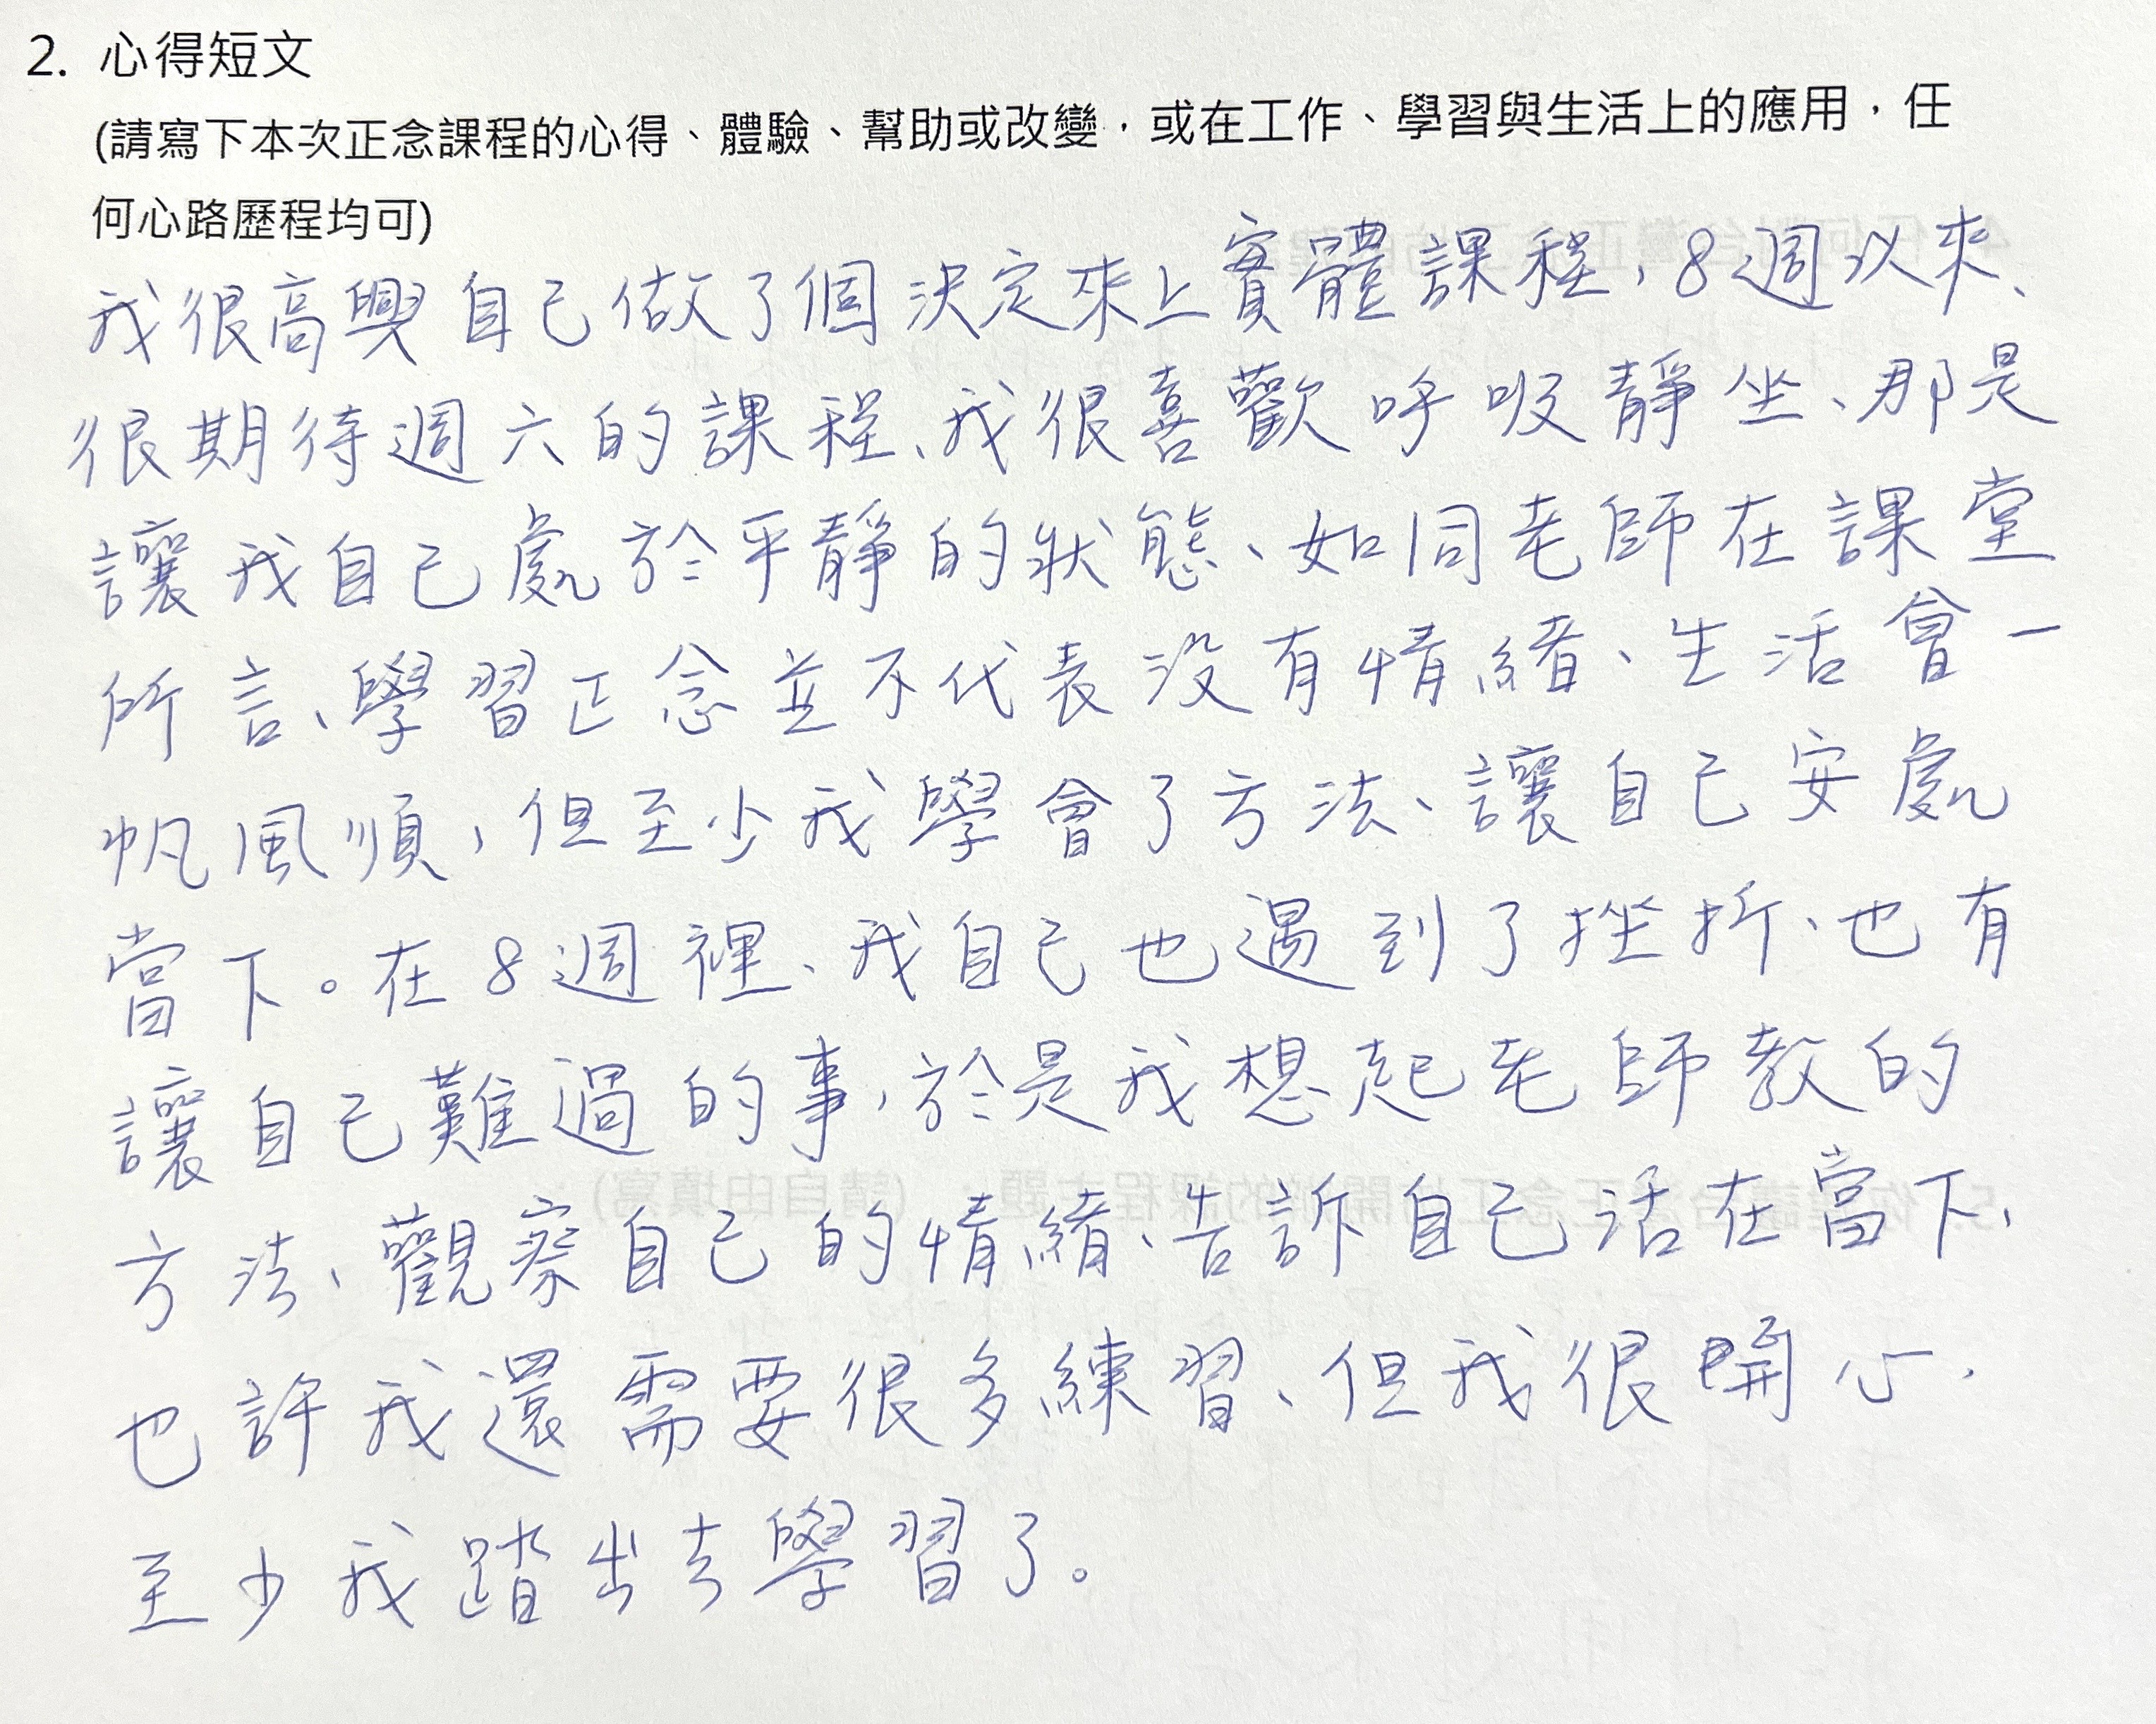 2. 心得短文
(請寫下本次正念課程的心得、體驗、幫助或改變，或在工作、學習與生活上的應用，任
何心路歷程均可)
我很高興自己做了個決定來上實體課程，8週以來、
很期待週六的課程、我很喜歡呼吸靜坐、那是
讓我自己處於平靜的狀態、如同老師在課堂
所言、學習正念並不代表沒有情緒、生活會一
帆風順，但至少我學會了方法、讓自己安處
當下。在8週裡、我自己也遇到了挫折、也有
讓自己難過的事，於是我想起老師教的
方法、觀察自己的情緒、告訴自己活在當下，
也許我還需要很多練習、但我很開心，
至少我踏出去學習了。